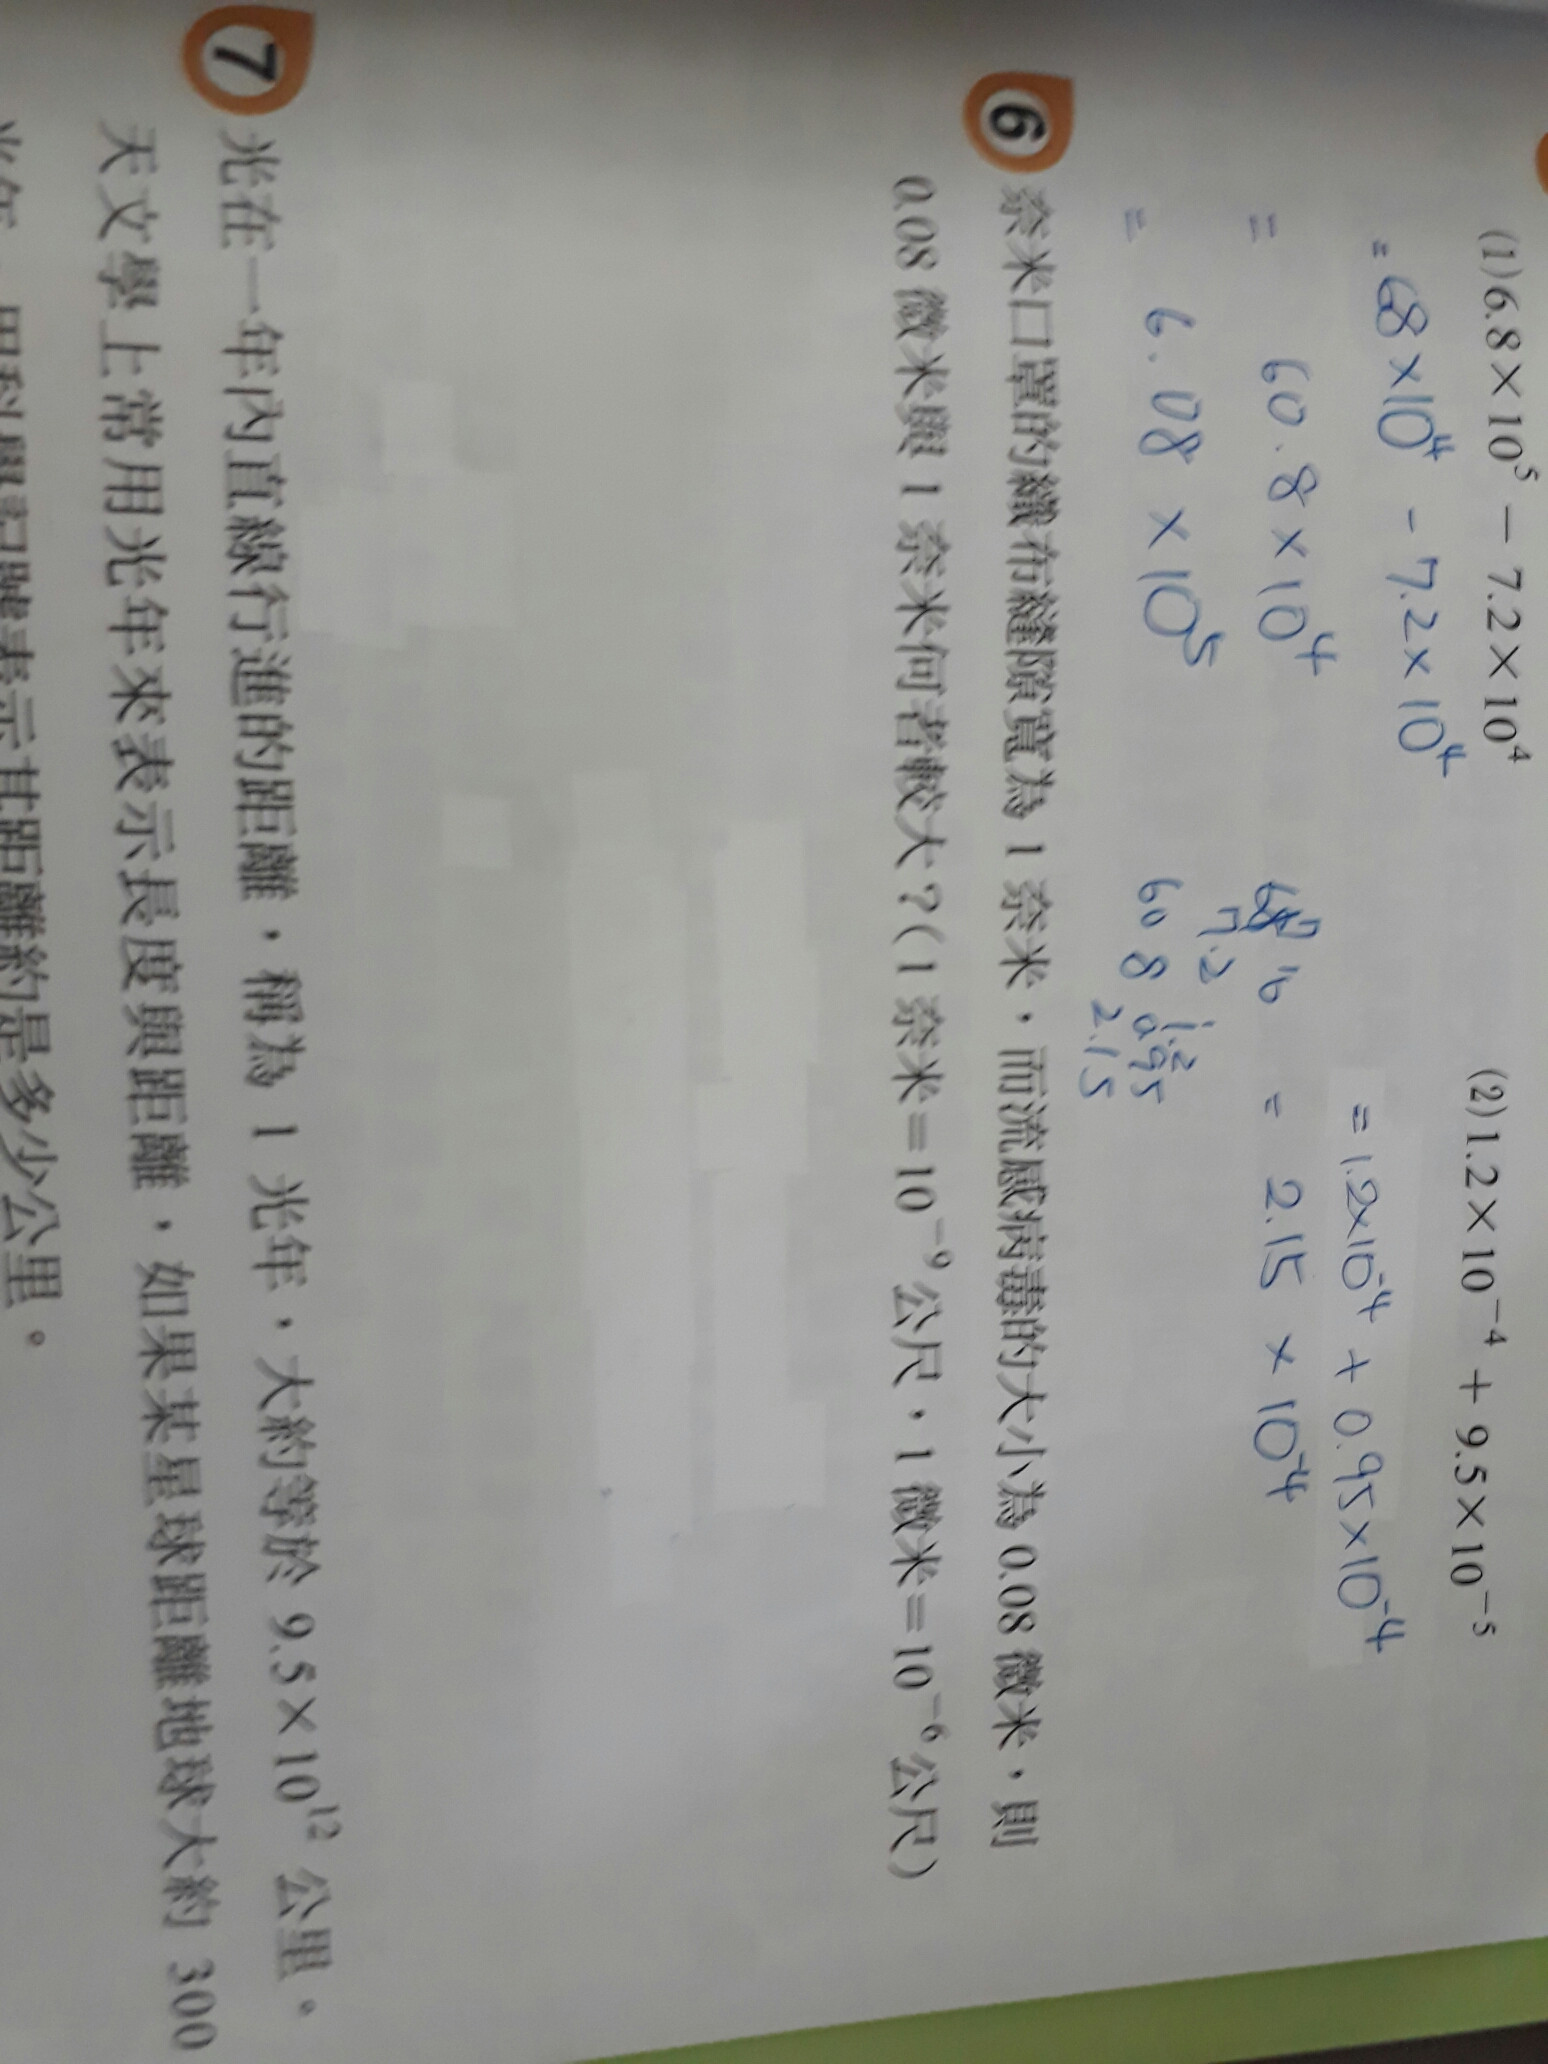 (1) 6.8×10⁵－7.2×10⁴
= 68×10⁴ - 7.2×10⁴
= 60.8×10⁴
= 6.08×10⁵
7.2
60 8
(2) 1.2×10⁻⁴＋9.5×10⁻⁵
= 1.2×10⁻⁴ + 0.95×10⁻⁴
= 2.15×10⁻⁴
1.2
0.95
2.15
6 奈米口罩的纖布縫隙寬為 1 奈米，而流感病毒的大小為 0.08 微米，則
0.08 微米與 1 奈米何者較大？(1 奈米＝10⁻⁹ 公尺，1 微米＝10⁻⁶ 公尺)
7 光在一年內直線行進的距離，稱為 1 光年，大約等於 9.5×10¹² 公里。
天文學上常用光年來表示長度與距離，如果某星球距離地球大約 300
光年，用科學記號表示其距離約是多少公里。